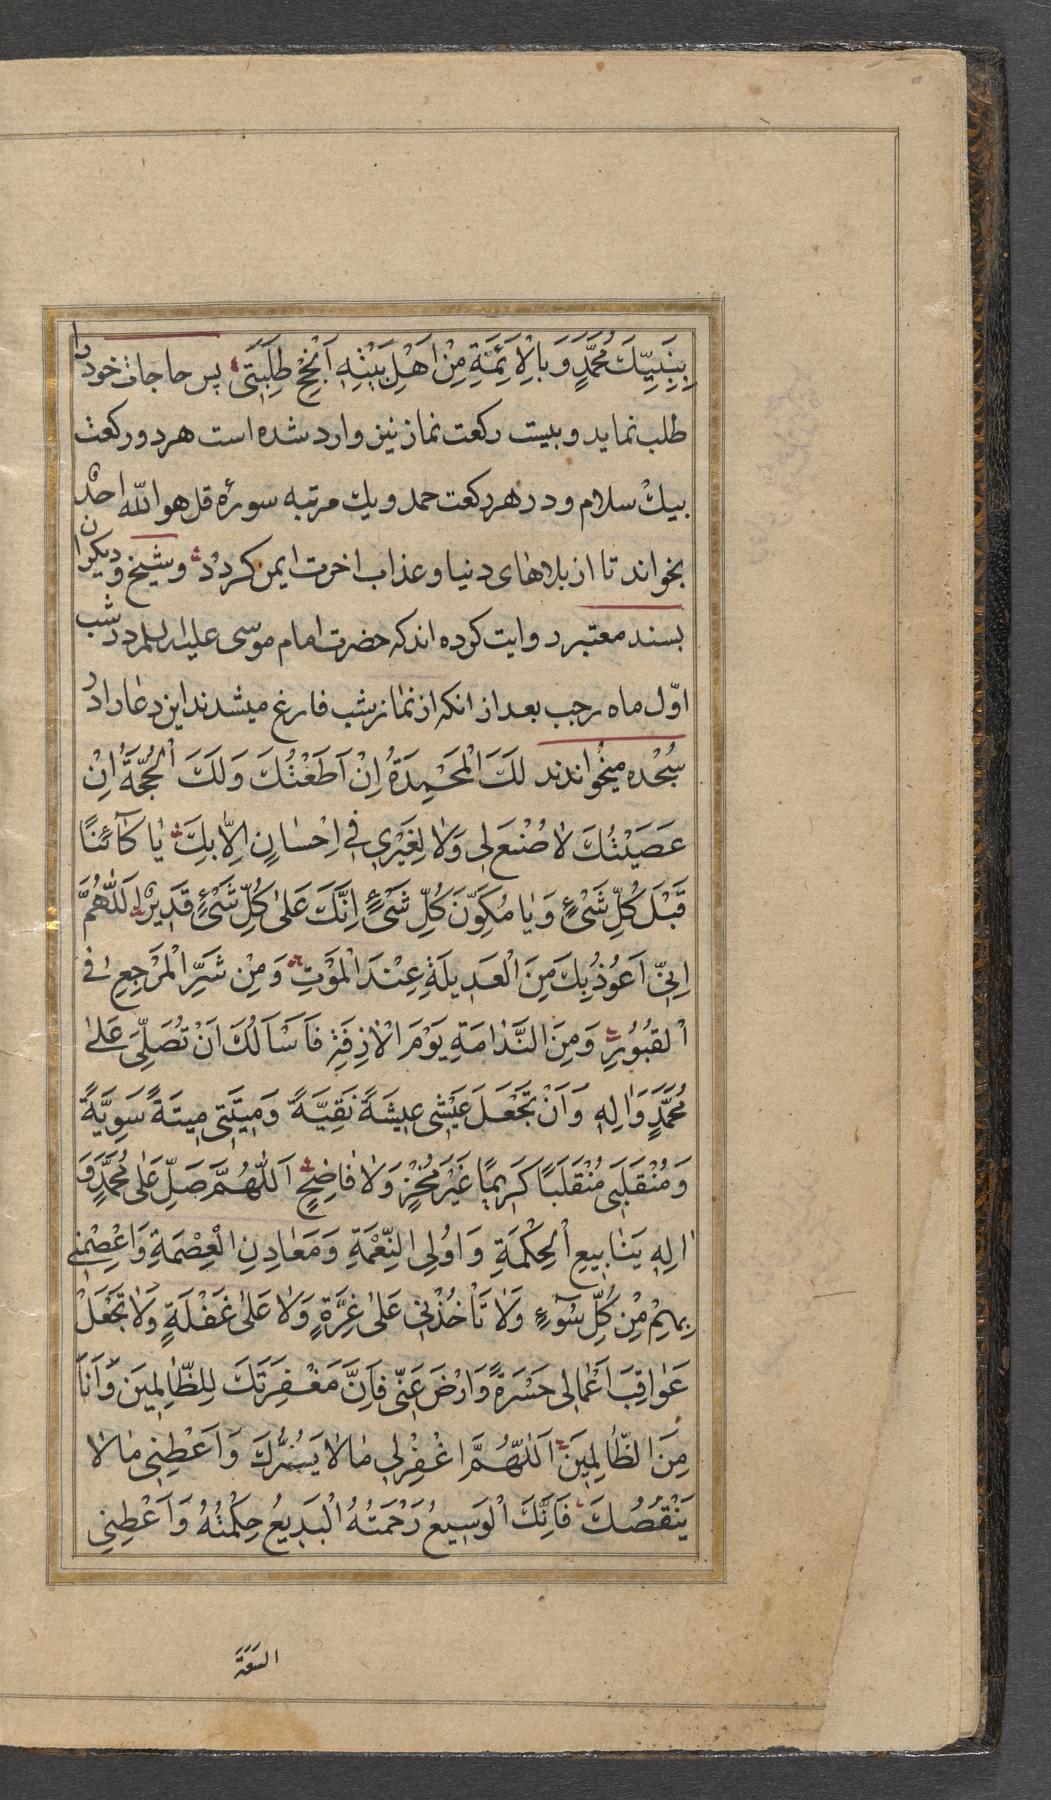 بِنَبِيِّكَ مُحَمَّدٍ وَ بِالْاَئِمَّةِ مِنْ اَهْلِ بَيْتِهِ اَنْجِحْ طَلِبَتى پس حاجات خود را
طلب نماید و بیست رکعت نماز نیز وارد شده است هر دو رکعت
بیك سلام و در هر رکعت حمد و یك مرتبه سورۀ قل هو اللّه احدٌ
بخواند تا از بلاهاى دنیا و عذاب اخرت ایمن کردد و شیخ و دیکران
بسند معتبر روایت کرده اند که حضرت امام موسى علیه السلام در شب
اوّل ماه رجب بعد از انکه از نماز شب فارغ میشدند این دعا را در
سجده میخواندند لَكَ الْمَحْمِدَةُ اِنْ اَطَعْتُكَ وَ لَكَ الْحُجَّةُ اِنْ
عَصَيْتُكَ لاٰ صُنْعَ لى وَ لاٰ لِغَيْرى فى اِحْسانٍ اِلاّٰ بِكَ يٰا كٰائِنًا
قَبْلَ كُلِّ شَىْءٍ وَ يٰا مُكَوِّنَ كُلِّ شَىْءٍ اِنَّكَ عَلىٰ كُلِّ شَىْءٍ قَديرٌ اَللّٰهُمَّ
اِنّى اَعُوذُ بِكَ مِنَ الْعَديلَةِ عِنْدَ الْمَوْتِ وَ مِنْ شَرِّ الْمَرْجِعِ فى
الْقُبُورِ وَ مِنَ النَّدٰامَةِ يَوْمَ الْاٰزِفَةِ فَاَسْاَلُكَ اَنْ تُصَلِّىَ عَلىٰ
مُحَمَّدٍ وَ اٰلِهِ وَ اَنْ تَجْعَلَ عَيْشى عيشَةً نَقِيَّةً وَ ميتَتى ميتَةً سَوِيَّةً
وَ مُنْقَلَبى مُنْقَلَبًا كَريمًا غَيْرَ مُخْزٍ وَ لاٰ فٰاضِحٍ اَللّٰهُمَّ صَلِّ عَلىٰ مُحَمَّدٍ وَ
اٰلِهِ يَنٰابيعِ الْحِكْمَةِ وَ اُولِى النِّعْمَةِ وَ مَعٰادِنِ الْعِصْمَةِ وَ اعْصِمْنى
بِهِمْ مِنْ كُلِّ سُوٓءٍ وَ لاٰ تَاْخُذْنى عَلىٰ غِرَّةٍ وَ لاٰ عَلىٰ غَفْلَةٍ وَ لاٰ تَجْعَلْ
عَوٰاقِبَ اَعْمٰالى حَسْرَةً وَ ارْضَ عَنّى فَاِنَّ مَغْفِرَتَكَ لِلظّٰالِمينَ وَ اَنَا
مِنَ الظّٰالِمينَ اَللّٰهُمَّ اغْفِرْ لى مٰا لاٰ يَضُرُّكَ وَ اَعْطِنى مٰا لاٰ
يَنْقُصُكَ فَاِنَّكَ الْوَسيعُ رَحْمَتُهُ الْبَديعُ حِكْمَتُهُ وَ اَعْطِنى
السَّعَةَ